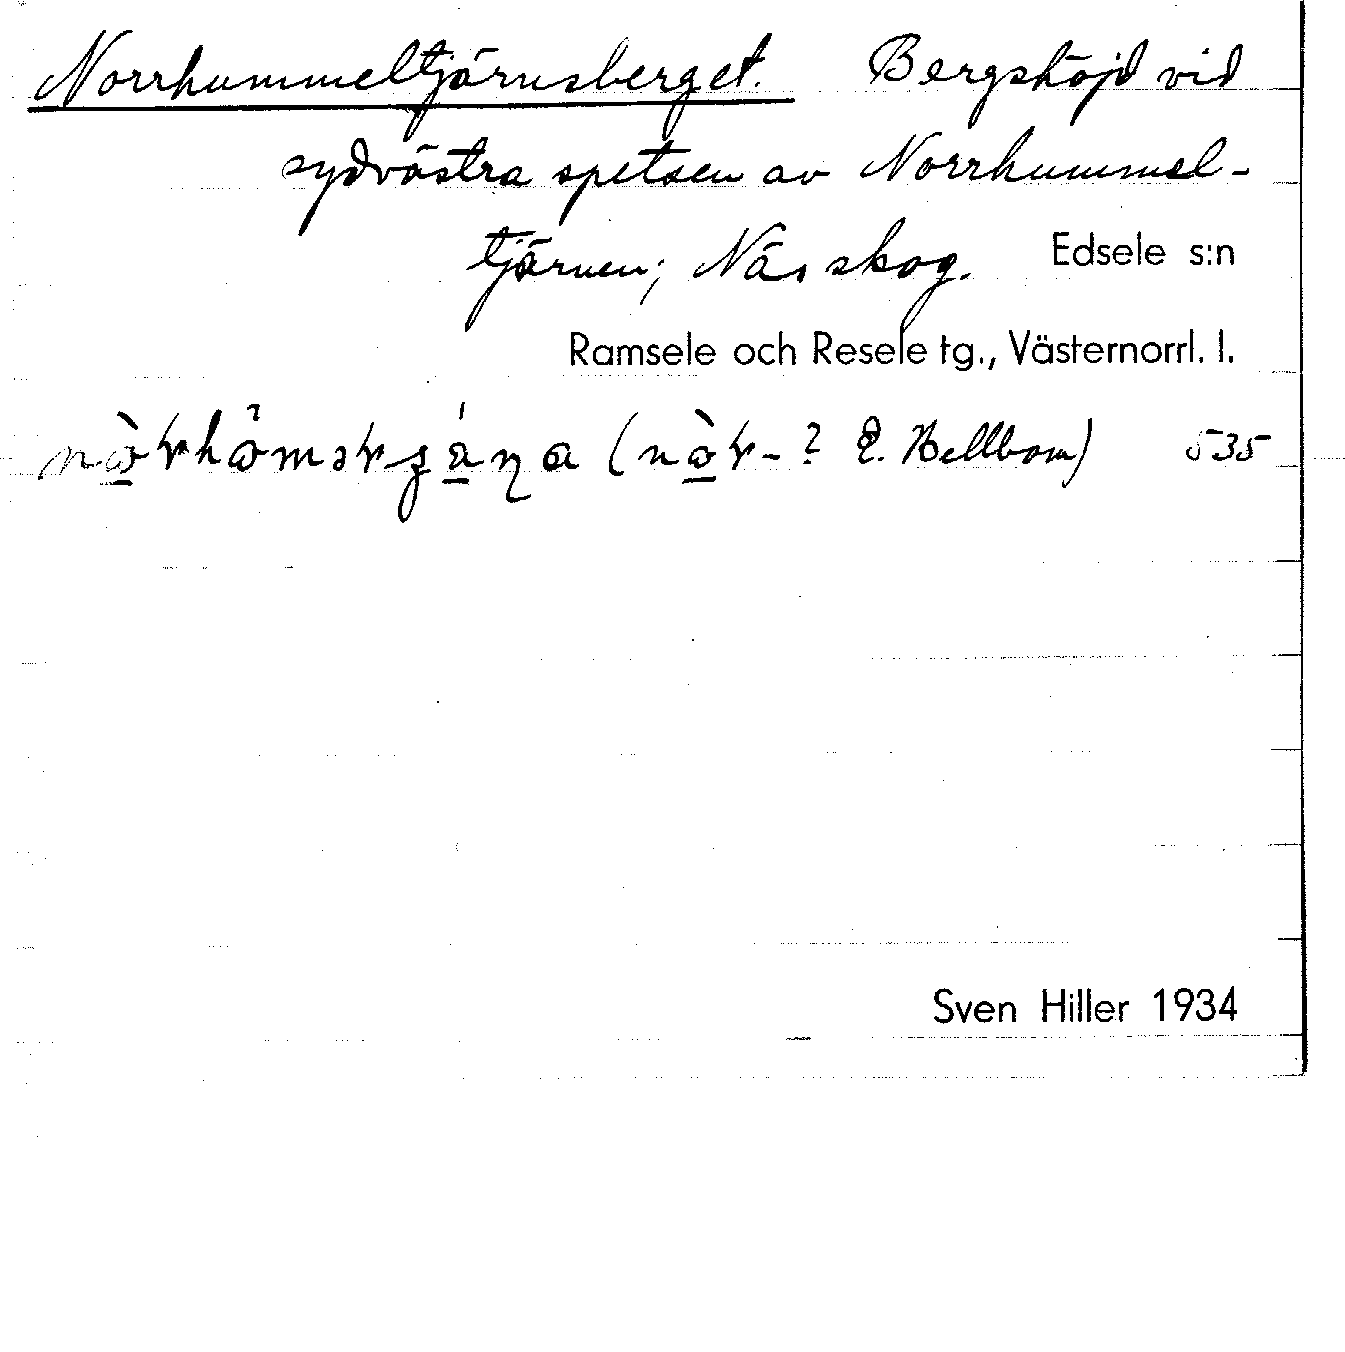 Norrhummeltjärnsberget. Bergshöjd vid
sydvästra spetsen av Norrhummel-
tjärnen; Näs skog. Edsele s:n
Ramsele och Resele tg., Västernorrl. l.
(E. Hellbom) 535
Sven Hiller 1934